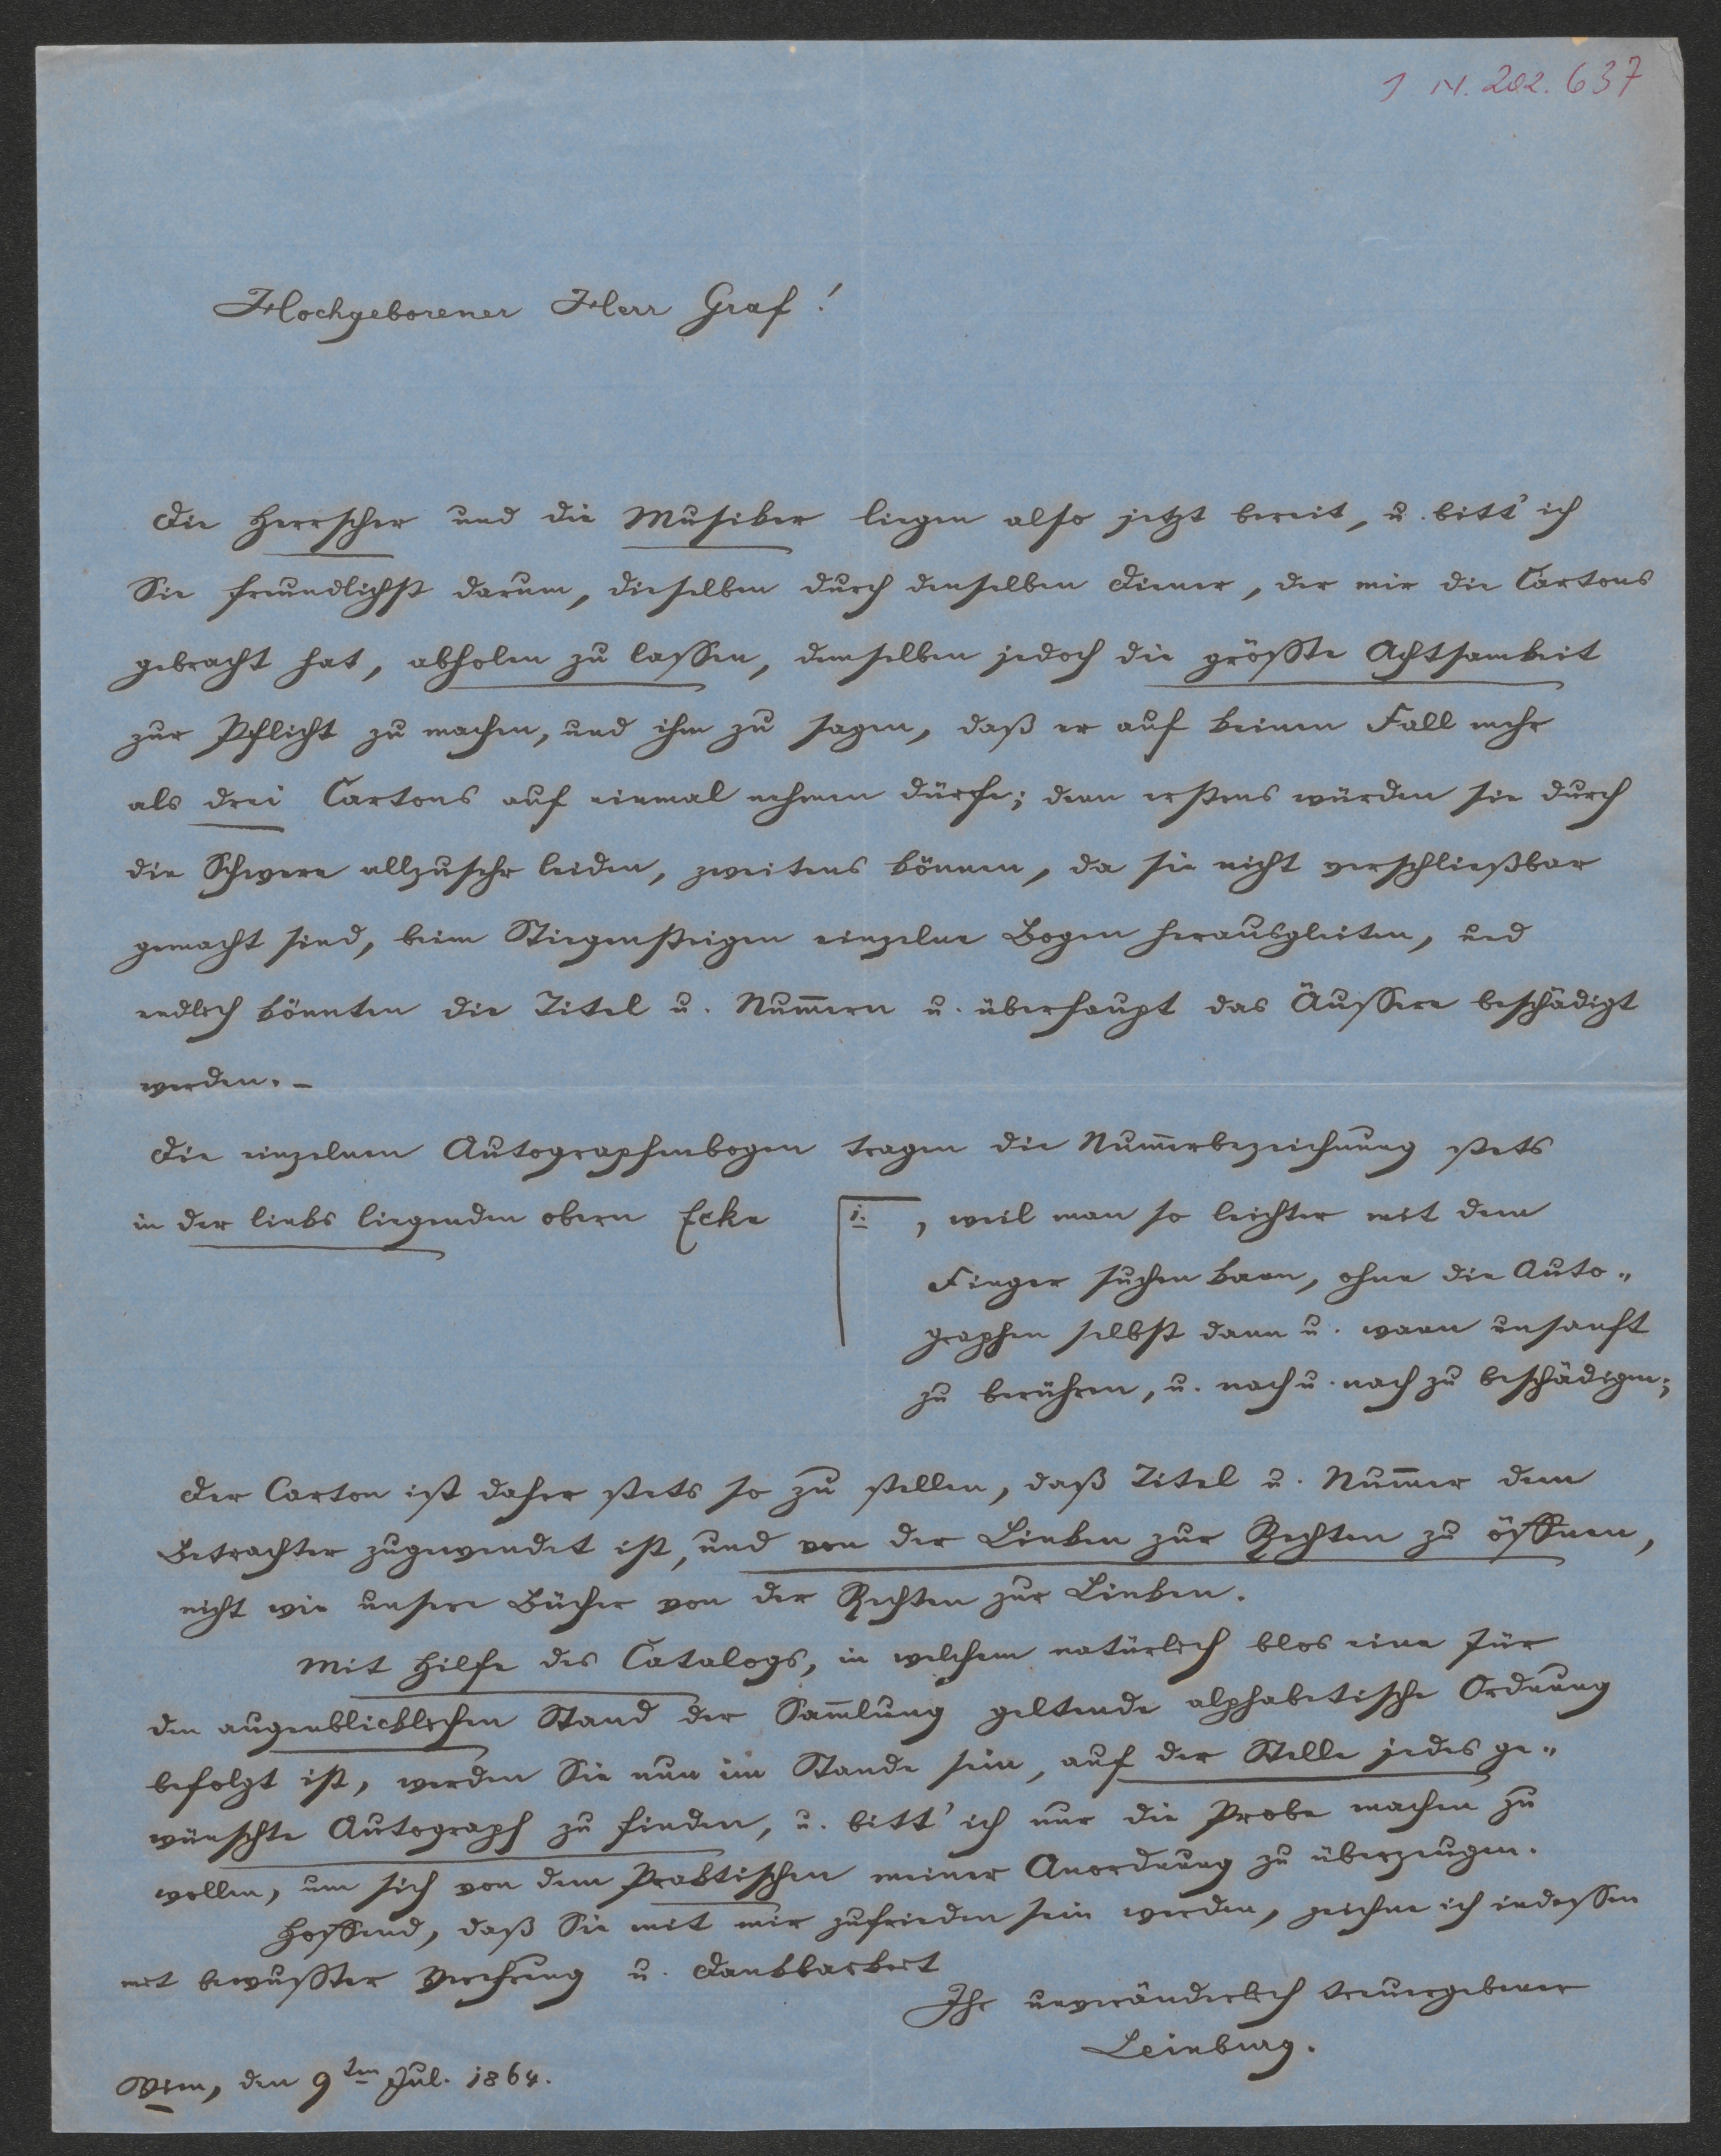 J N. 202.637
Hochgeborener Herr Graf!
Die Herrscher und die Musiker liegen also jetzt bereit, u. bitt' ich
Sie freundlichst darum, dieselben durch denselben Diener, der mir die Cartons
gebracht hat, abholen zu lassen, demselben jedoch die größte Achtsamkeit
zur Pflicht zu machen, und ihm zu sagen, daß er auf keinen Fall mehr
als drei Cartons auf einmal nehmen dürfe; denn erstens würden sie durch
die Schwere allzusehr leiden, zweitens können, da sie nicht verschließbar
gemacht sind, beim Stiegensteigen einzelne Bogen herausgleiten, und
endlich könnten die Titel u. Num̅ern u. überhaupt das Äussere beschädigt
werden. –
Die einzelnen Autographenbogen tragen die Num̅erbezeichnung stets
in der links liegenden obern Ecke 1. , weil man so leichter mit dem
Finger suchen kann, ohne die Auto„
graphen selbst dann u. wann unsanft
zu berühren, u. nach u. nach zu beschädigen;
Der Carton ist daher stets so zu stellen, daß Titel u. Num̅er dem
Betrachter zugewendet ist, und von der Linken zur Rechten zu öffnen,
nicht wie unsere Bücher von der Rechten zur Linken.
Mit Hilfe des Catalogs, in welchem natürlich blos eine für
den augenblicklichen Stand der Sam̅lung geltende alphabetische Ordnung
befolgt ist, werden Sie nun im Stande sein, auf der Stelle jedes ge„
wünschte Autograph zu finden, u. bitt' ich nur die Probe machen zu
wollen, um sich von dem Praktischen meiner Anordnung zu überzeugen.
Hoffend, daß Sie mit mir zufrieden sein werden, zeichne ich indessen
mit bewußter Verehrung u. Dankbarkeit
Ihr unveränderlich treuergebener
Leinburg.
Wien, den 9ten Jul. 1864.